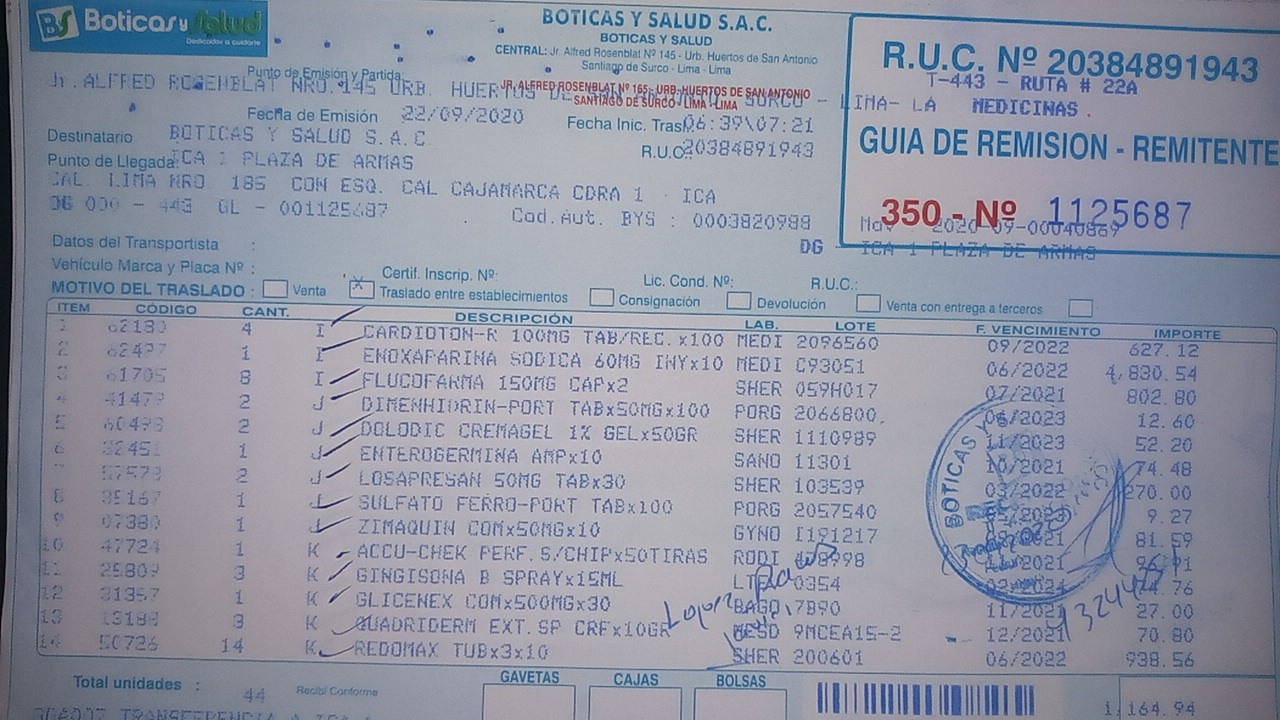 Boticas y Salud
Dedicados a cuidarte
BOTICAS Y SALUD S.A.C.
BOTICAS Y SALUD
CENTRAL: Jr. Alfred Rosenblat Nº 145 - Urb. Huertos de San Antonio
Santiago de Surco - Lima - Lima
R.U.C. Nº 20384891943
T-443 - RUTA # 22A
MEDICINAS .
GUIA DE REMISION - REMITENTE
350 - Nº 1125687
2020-09-00040869
ICA 1 PLAZA DE ARMAS
Punto de Emisión y Partida:
Jr. ALFRED ROSENBLAT NRO. 145 URB. HUERTOS DE SURCO - LIMA- LA
JR. ALFRED ROSENBLAT Nº 165- URB. HUERTOS DE SAN ANTONIO
SANTIAGO DE SURCO- LIMA- LIMA
Fecha de Emisión 22/09/2020 Fecha Inic. Tras. 06:39\07:21
Destinatario BOTICAS Y SALUD S.A.C. R.U.C. 20384891943
Punto de Llegada: ICA 1 PLAZA DE ARMAS
CAL. LIMA NRO. 185 CON ESQ. CAL CAJAMARCA CDRA 1 - ICA
DG 000 - 443 GL - 001125687 Cod.Aut. BYS : 0003820988
DG
Datos del Transportista :
Vehículo Marca y Placa Nº : Certif. Inscrip. Nº: Lic. Cond. Nº: R.U.C.:
MOTIVO DEL TRASLADO : Venta X Traslado entre establecimientos Consignación Devolución Venta con entrega a terceros
ITEM CÓDIGO CANT. DESCRIPCIÓN LAB. LOTE F. VENCIMIENTO IMPORTE
1 62180 4 I CARDIOTON-R 100MG TAB/REC.x100 MEDI 2096560 09/2022 627.12
2 62497 1 I ENOXAPARINA SODICA 60MG INYx10 MEDI C93051 06/2022 4,830.54
3 61705 8 I FLUCOFARMA 150MG CAPx2 SHER 059H017 07/2021 802.80
4 41479 2 J DIMENHIDRIN-PORT TABx50MGx100 PORG 2066800 06/2023 12.60
5 60498 2 J DOLODIC CREMAGEL 1% GELx50GR SHER 1110989 11/2023 52.20
6 32451 1 J ENTEROGERMINA AMPx10 SANO 11301 10/2021 74.48
7 57573 2 J LOSAPRESAN 50MG TABx30 SHER 103539 03/2022 270.00
8 35167 1 J SULFATO FERRO-PORT TABx100 PORG 2057540 9.27
9 07380 1 J ZIMAQUIN COMx50MGx10 GYNO I191217 81.59
10 47724 1 K ACCU-CHEK PERF.S/CHIPx50TIRAS RODI
11 25809 3 K GINGISONA B SPRAYx15ML 0354
12 31357 1 K GLICENEX COMx500MGx30 BAGO 7B90 11/2021 27.00
13 13188 3 K QUADRIDERM EXT.SP CREx10GR MESD 9MCEA15-2 12/2021 70.80
14 50726 14 K REDOMAX TUBx3x10 SHER 200601 06/2022 938.56
BOTICAS Y
Total unidades : 44 Recibí Conforme GAVETAS CAJAS BOLSAS
1,164.94
TRANSFERENCIA A ICA